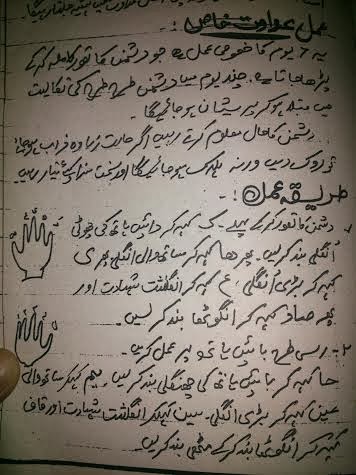 عمل عداوت خاص :-
یہ 7 یوم کا خصوصی عمل ہے جو دشمن کا تصور کاملہ کر کے
پڑھا جاتا ہے۔ چند یوم میں دشمن طرح طرح کی تکالیف
میں مبتلا ہو کر پریشان ہو جائیگا
دشمن کا حال معلوم کرتے رہیں اگر حالت زیادہ خراب ہو جائے
تو روک دیں ورنہ ہلاک ہو جائیگا اور سخت سزا کیلئے تیار رہیں
طریقہ عمل :-
۱ دشمن کا تصور کر کے پہلے۔ ک کہہ کر دائیں ہاتھ کی چھوٹی
اُنگلی بند کریں۔ پھر ھا کہہ کر ساتھ والی انگلی پھر ی
کہہ کر بڑی اُنگلی، ع کہہ کر انگشت شہادت اور
پھر صاد کہہ کر انگوٹھا بند کر لیں۔
۲۔ اسی طرح بائیں ہاتھ پر عمل کریں۔
حا کہہ کر بائیں ہاتھ کی چھنگلی بند کریں میم کہہ کر ساتھ والی
عین کہہ کر بڑی انگلی۔ سین کہہ کر انگشت شہادت اور قاف
کہہ کر انگوٹھا بند کر کے مٹھی بند کریں۔